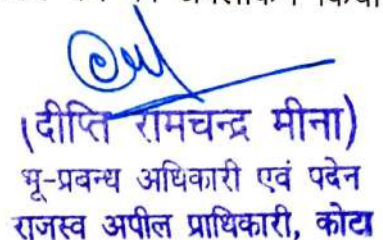 अवलोकन किया
(दीप्ति रामचन्द्र मीना)
भू-प्रबन्ध अधिकारी एवं पदेन
राजस्व अपील प्राधिकारी, कोटा